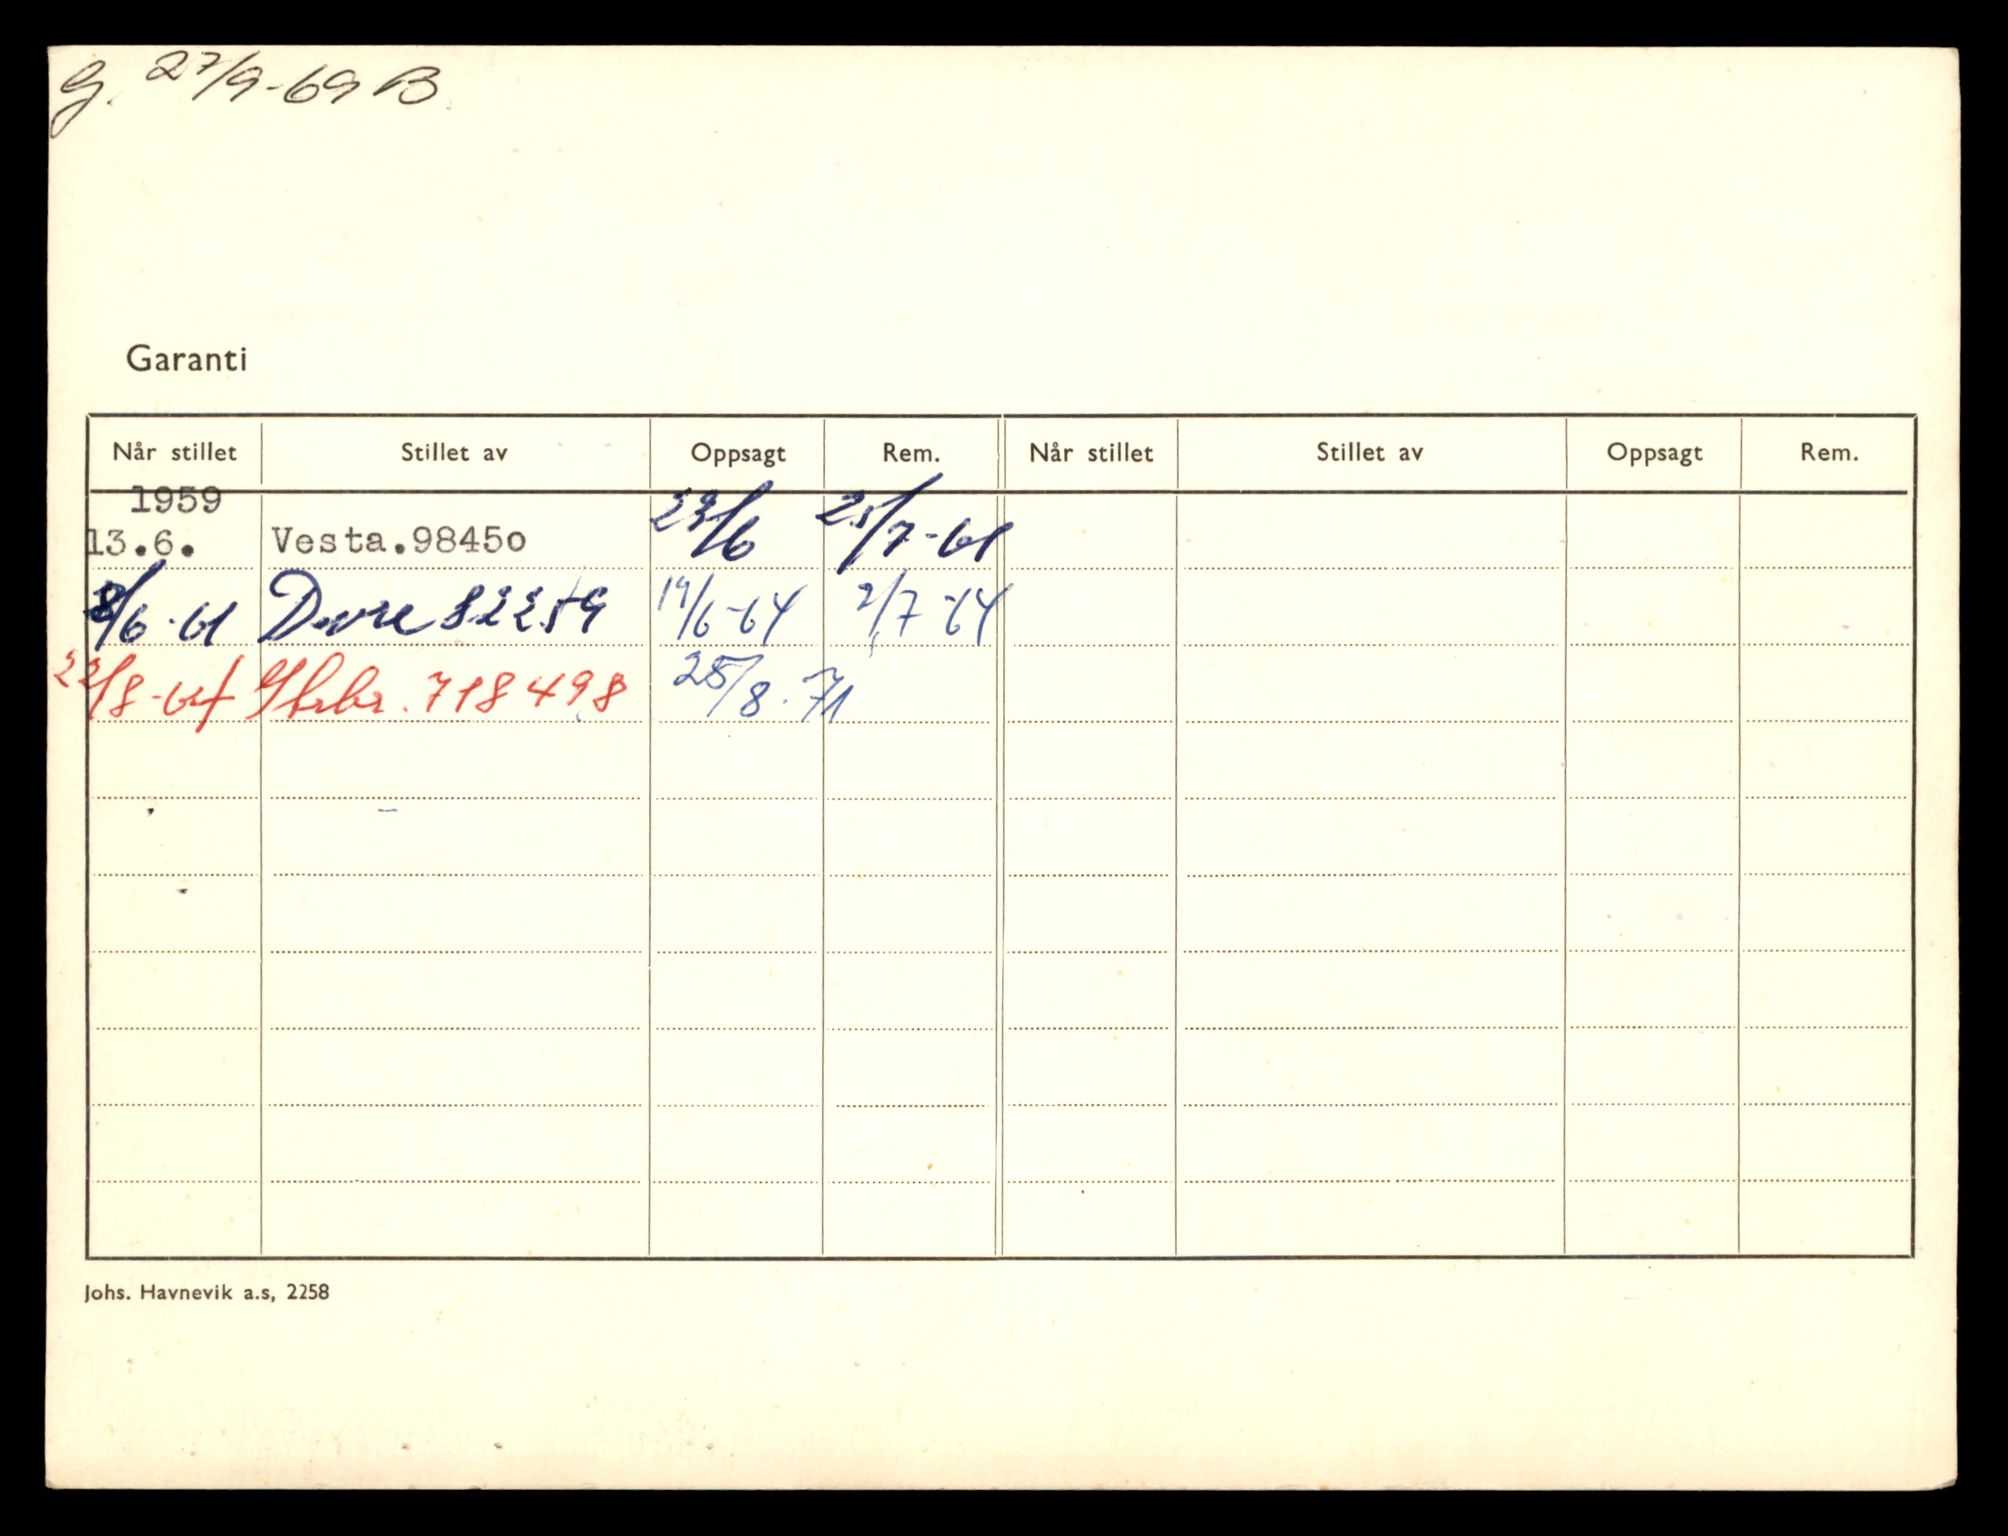 G. 27/9-69 B
Garanti
Når stillet Stillet av Oppsagt Rem. Når stillet Stillet av Oppsagt Rem.
1959
13.6. Vesta.98450 23/6 25/7-61
8/6-61 Dovre 82259 19/6-64 2/7-64
22/8-64 718498 25/8-71
Johs. Havnevik a.s, 2258